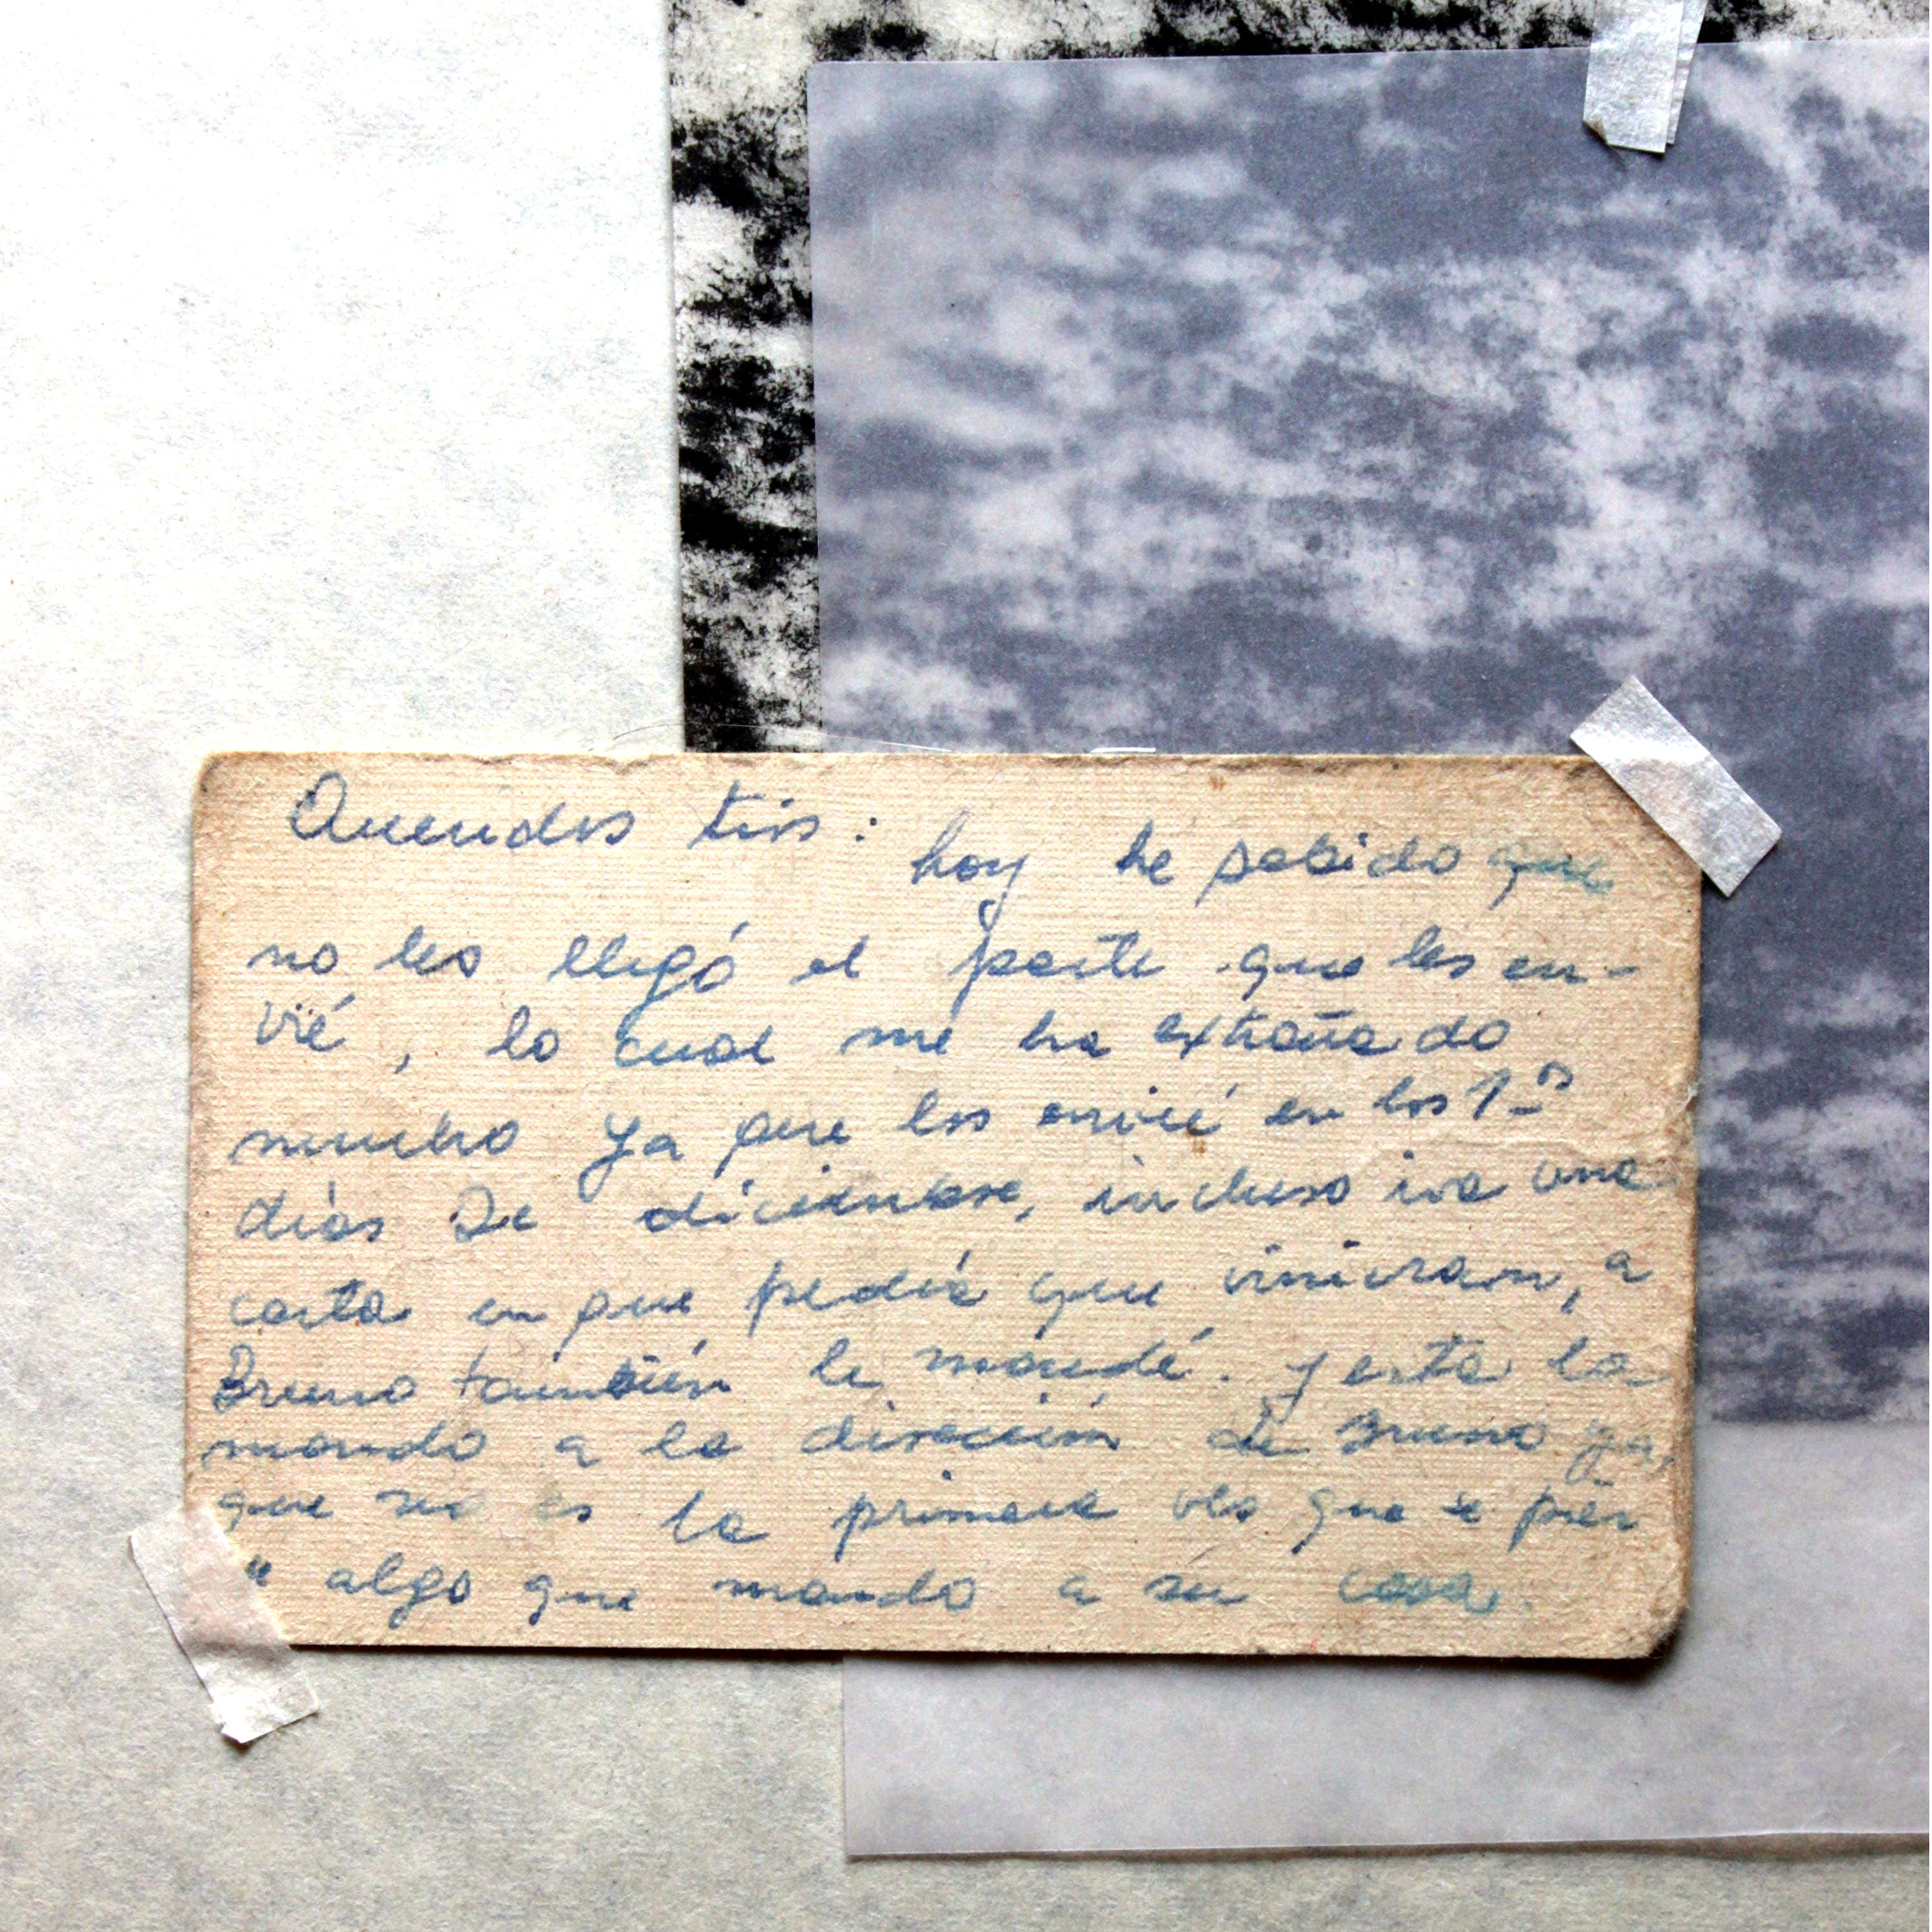 Queridos tios:
hoy he sabido que
no les llegó el parte que les en-
vié, lo cual me ha extrañado
mucho ya que los envié en los 1ºs
días de diciembre, incluso iva una
carta en que pedía que vinieran, a
Bruno también le mandé. y esta la
mando a la dirección de Bruno ya
que no es la primera ves que se pier
algo que mando a su casa.